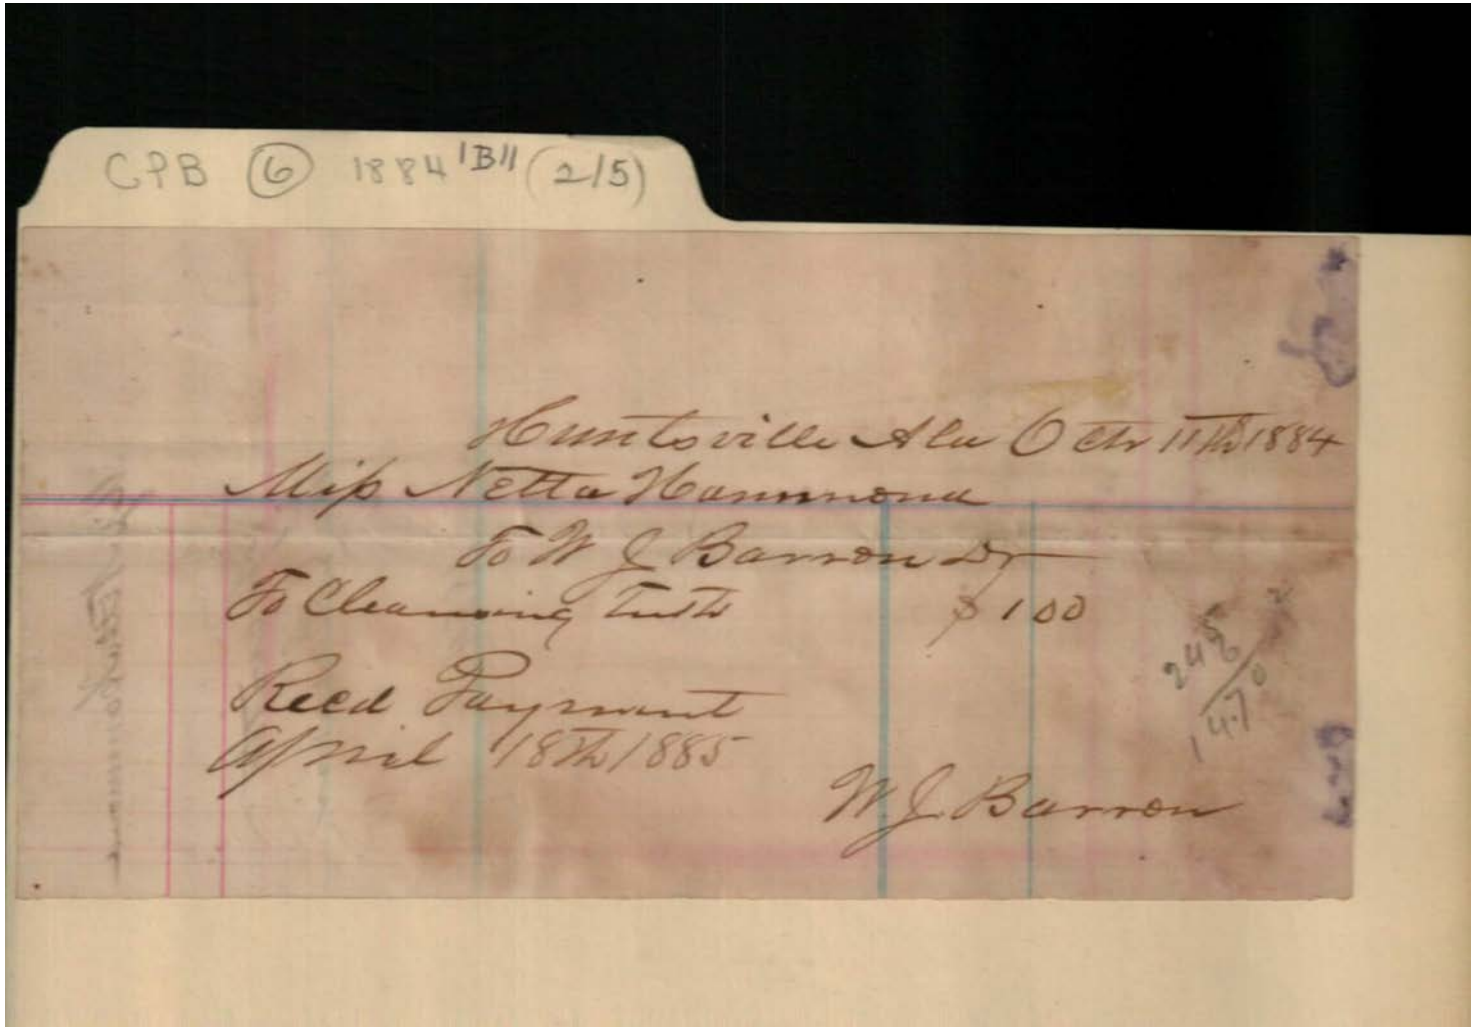 CPB 6 1884 "B" (2/5)
Huntsville Ala Octr 11th 1884
Miss Netta Hammond
To W J Barron Dr
To Cleansing Teeth $ 1 00
Recd Payment
April 18th 1885
W. J. Barron